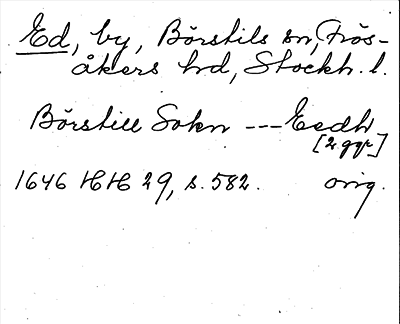 Ed, by, Börstils sn, Frös-
åkers hd, Stockh. l.
Börstill Sokn --- Eedh
[2 ggr]
1646 HH 29, s. 582. orig.